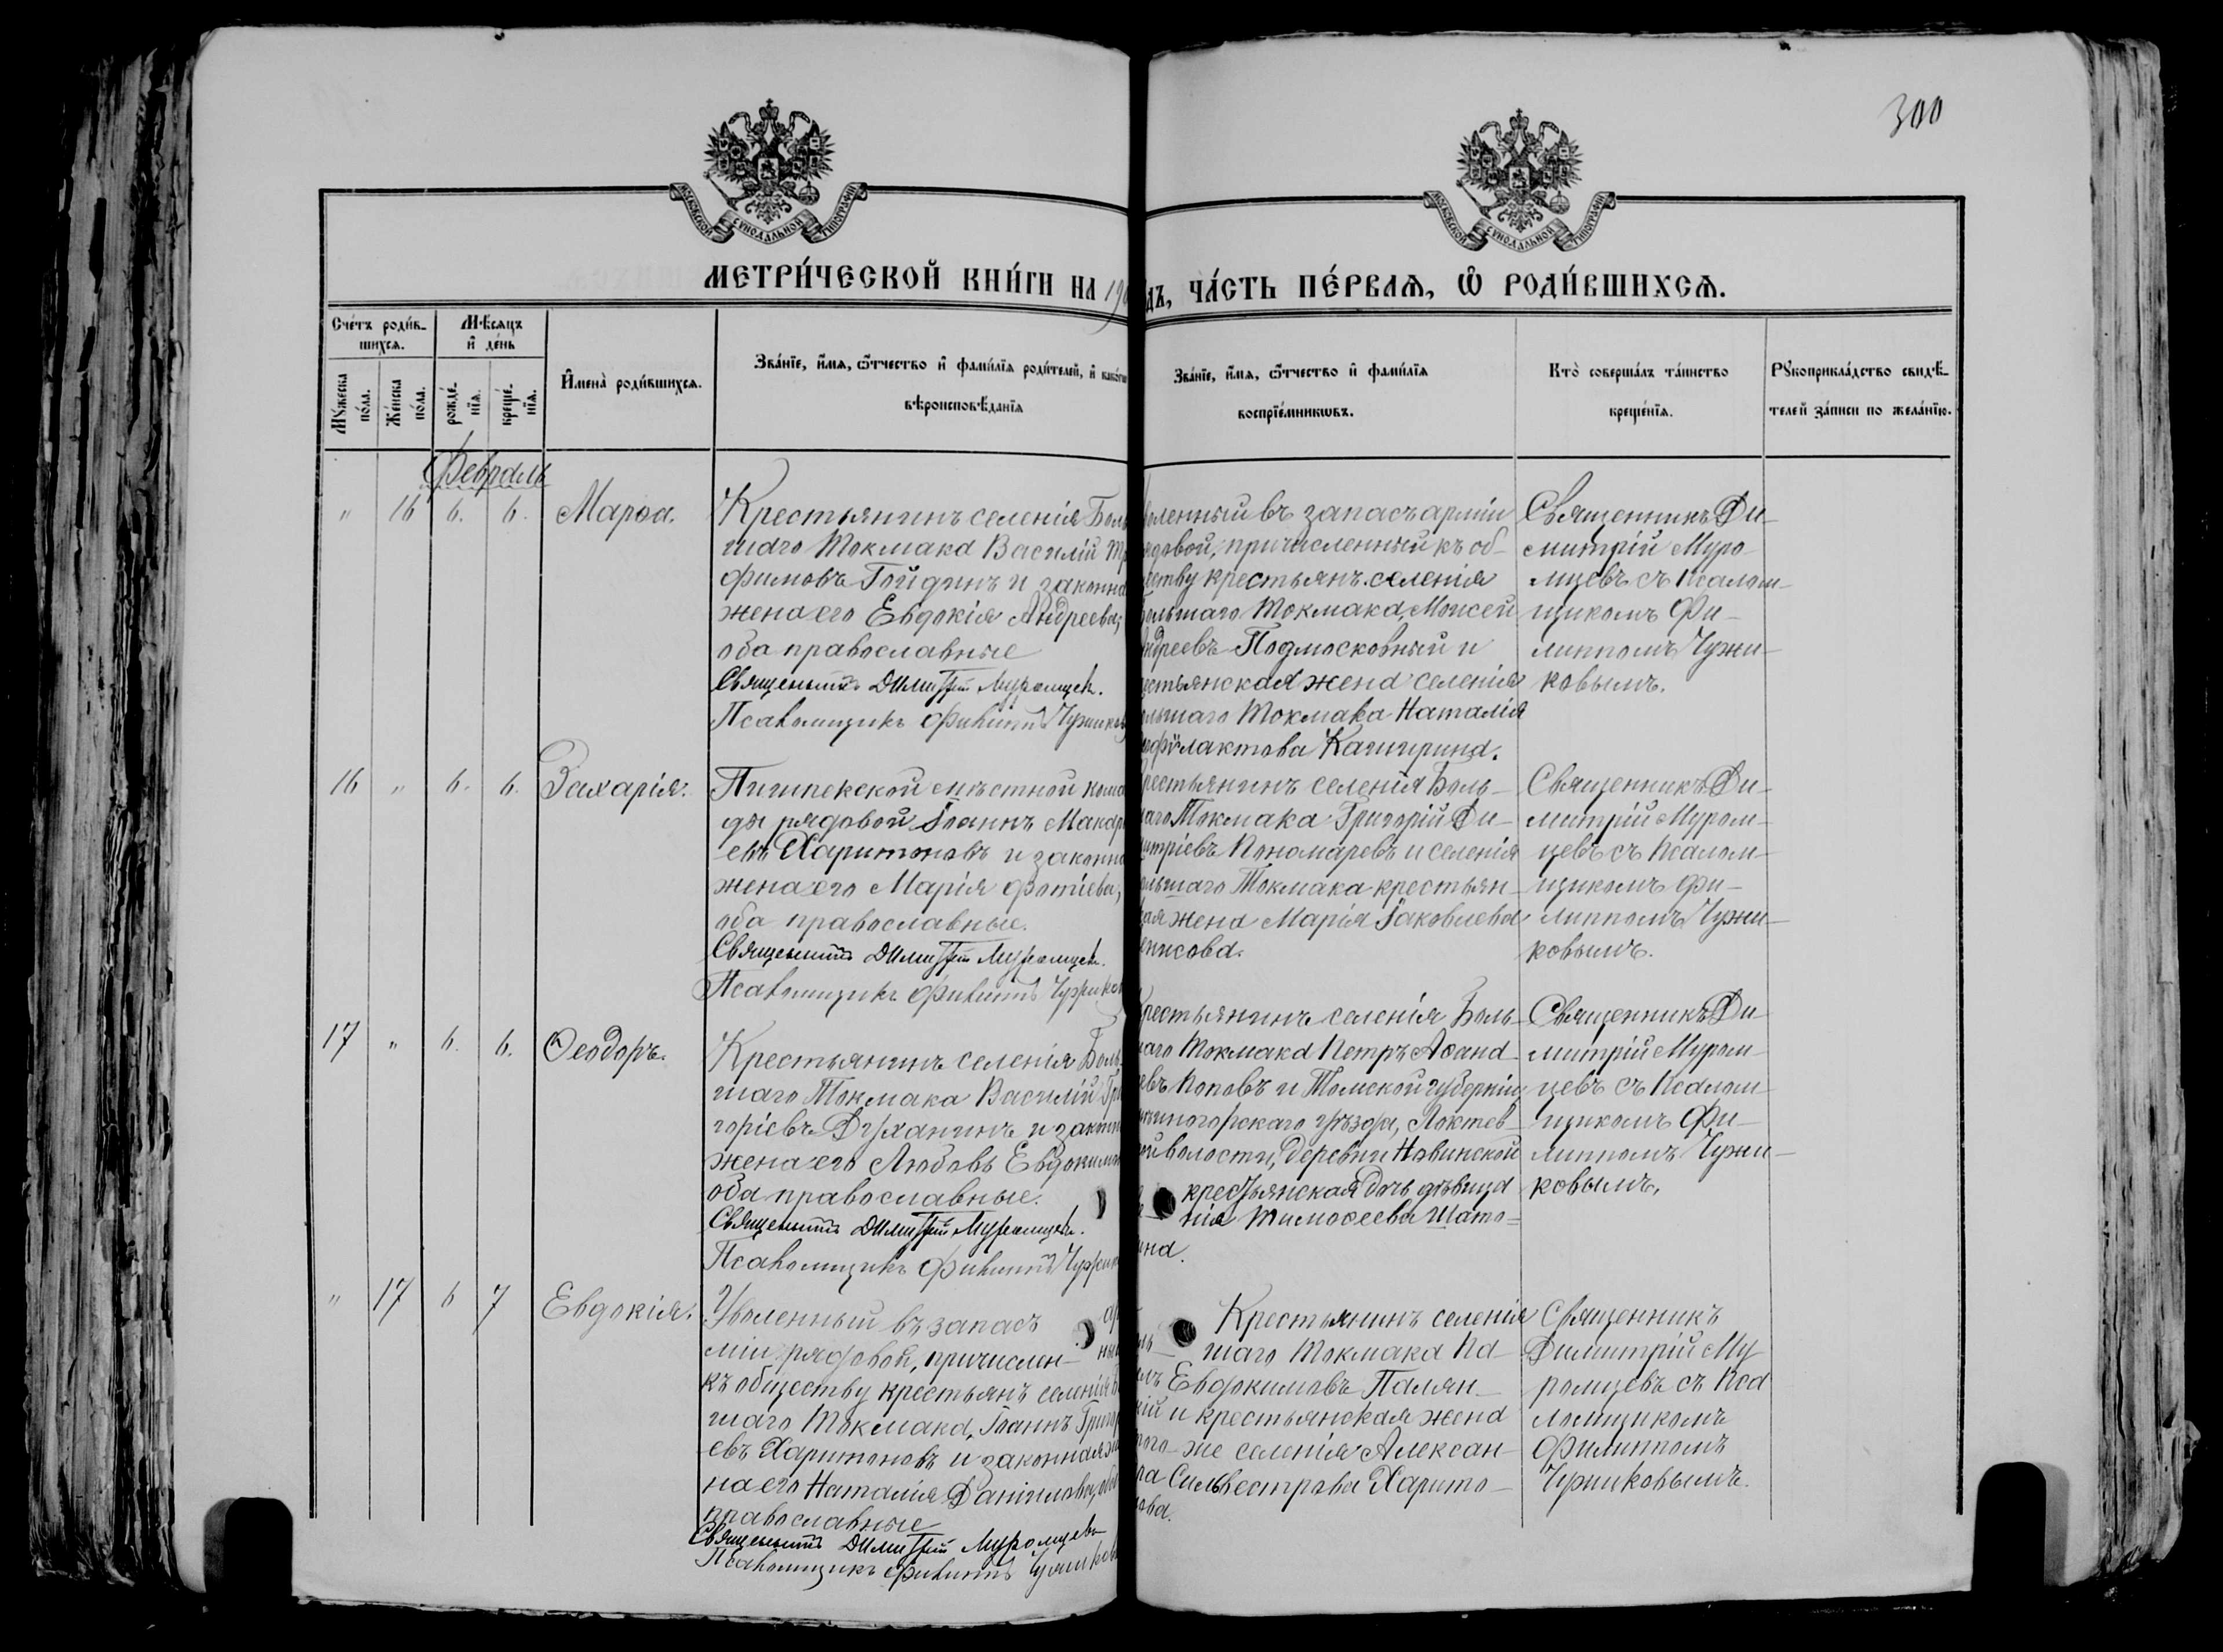 300
МОСКОВСКОЙ СѴНОДАЛЬНОЙ ТИПОГРАФІИ
МОСКОВСКОЙ СѴНОДАЛЬНОЙ ТИПОГРАФІИ
МЕТРИ́ЧЕСКОЙ КНИ́ГИ НА 190
дъ, ЧА́СТЬ ПЕ́РВАѦ, Ѡ҆ РОДИ́ВШИХСѦ.
Сче́тъ роди́в-
шихсѧ.
Мꙋ́жеска
по́ла.
Же́нска
по́ла.
Мѣсѧцъ
и҆ де́нь
рожде́-
нїѧ.
креще́-
нїѧ.
И҆мена̀ роди́вшихсѧ.
Зва́нїе, и҆́мѧ, ѻ҆́тчество и҆ фами́лїѧ роди́телей, и҆ како́гѡ
вѣроисповѣ́данїѧ
Зва́нїе, и҆́мѧ, ѻ҆́тчество и҆ фами́лїѧ
воспрїе́мникѡвъ.
Кто̀ соверша́лъ та́инство
креще́нїѧ.
Рꙋкоприкла́дство свидѣ́-
телей за́писи по жела́нїю.
Февраль
" 16 6. 6. Марѳа.
Крестьянинъ селенія Боль
шаго Токмака Василій Тр
фимовъ Гойдинъ и законна
жена его Евдокія Андреева,
оба православные
Священникъ Димитрій Муромцевъ.
Псаломщикъ Филиппъ Чужиковъ
воленный въ запасъ арміи
ядовой, причисленный къ об-
еству крестьянъ селенія
ольшаго Токмака, Моисей
ндреевъ Подмосковный и
естьянская жена селенія
ольшаго Токмака Наталія
офілактова Кашірина.
Священникъ Ди-
митрій Муро
мцевъ съ псалом-
щикомъ Фи-
липпомъ Чужи-
ковымъ.
16 " 6. 6. Захарія.
Пишпекской мѣстной кома
ды рядовой Іоаннъ Макар
евъ Харитоновъ и законна
жена его Марія Фотіева,
оба православные.
Священникъ Димитрій Муромцевъ.
Псаломщикъ Филиппъ Чужиков
рестьянинъ селенія Боль-
аго Токмака Григорій Ди-
итріевъ Пономаревъ и селенія
ольшаго Токмака крестьян-
ая жена Марія Іаковлева
нисова.
Священникъ Ди-
митрій Муром-
цевъ съ псалом-
щикомъ Фи-
липпомъ Чужи-
ковымъ.
17 " 6. 6. Ѳеодоръ.
Крестьянинъ селенія Боль
шаго Токмака Василій Гри
горіевъ Духанинъ и законн
жена его Любовь Евдокимов
оба православные.
Священникъ Димитрій Муромцевъ.
Псаломщикъ Филиппъ Чужик
рестьянинъ селенія Боль-
аго Токмака Петръ Аѳана-
евъ Поповъ и Томской губерніи
иногорскаго уѣзда, Локтев-
ой волости, деревни Новинской
крестьянская дочь дѣвица
нія Тимоѳеева Шато-
ина.
Священникъ Ди-
митрій Муром-
цевъ съ псалом-
щикомъ Фи-
липпомъ Чужи-
ковымъ.
" 17 6 7 Евдокія.
Уволенный въ запасъ ар
міи рядовой, причислен- ны
къ обществу крестьянъ селенія Б
шаго Токмака, Іоаннъ Григор
евъ Харитоновъ и законная же
на его Наталія Даніилова, оба
православные
Священникъ Димитрій Муромцевъ
Псаломщикъ Филиппъ Чужиков
Крестьянинъ селенія
ль- шаго Токмака Па-
лъ Евдокимовъ Палян-
кій и крестьянская жена
того-же селенія Алексан-
ра Сильвестрова Харито-
нова.
Священникъ
Димитрій Му
ромцевъ съ пса
ломщикомъ
Филиппомъ
Чужиковымъ.